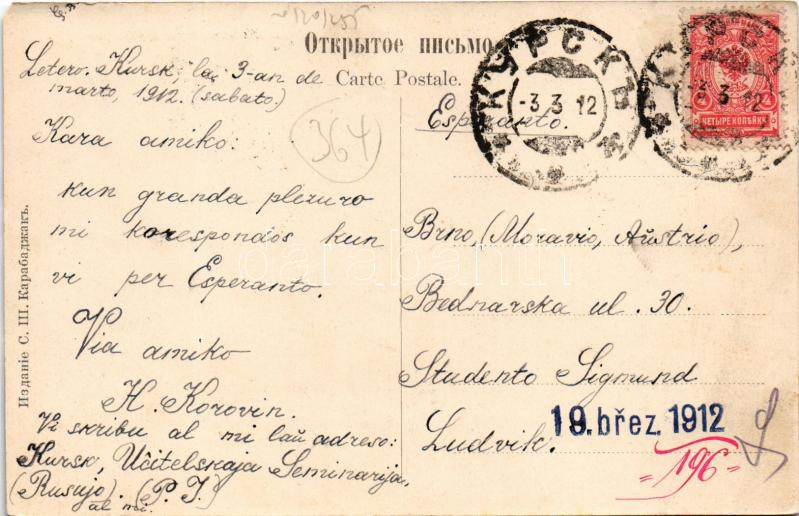 Открытое письмо.
Carte Postale.
Letero. Kursk, la 3-an de
marto, 1912. (sabato.)
364
Kara amiko:
kun granda plezuro
mi korespondos kun
vi per Esperanto.
Via amiko
H. Korovin.
Vi skribu al mi laŭ adreso:
Kursk, Učitelskaja Seminarija,
(Rusujo). (P. I.)
al mi.
Изданіе С. Ш. Карабаджакъ.
КУРСКЪ
-3 3 12
3 12
4 4
ЧЕТЫРЕ КОПѢЙКИ
Esperanto.
Brno, (Moravio, Aŭstrio),
Bednarska ul. 30.
Studento Sigmund
Ludvik.
19. břez. 1912
"196"
darabanth